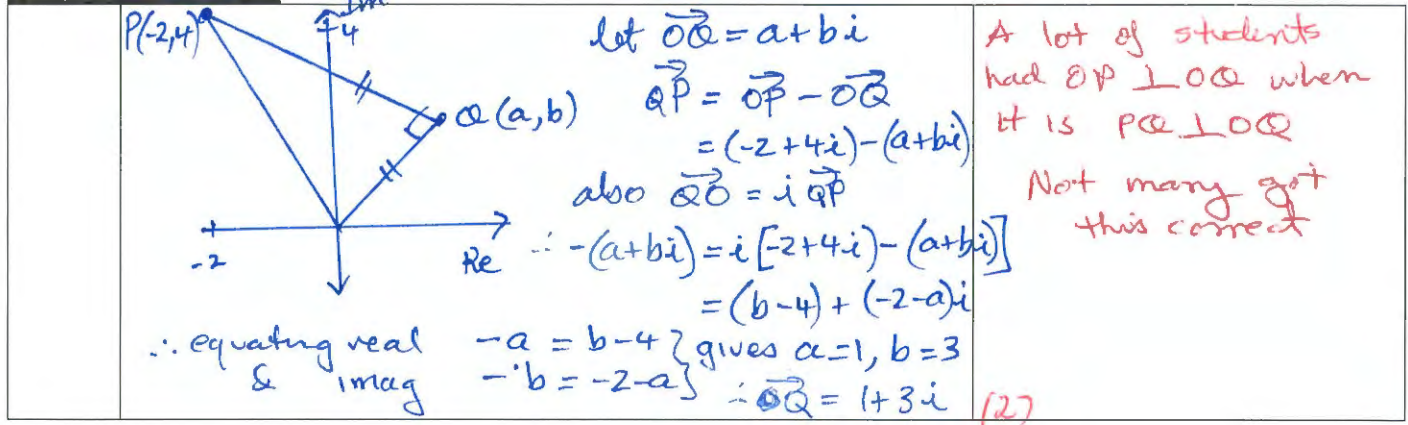 Im
P(-2,4)
4
Q(a,b)
-2
Re
let OQ→ = a+bi
QP→ = OP→ - OQ→
= (-2+4i)-(a+bi)
also QO→ = i QP→
∴ -(a+bi) = i [-2+4i)-(a+bi)]
= (b-4) + (-2-a)i
∴ equating real -a = b-4 } gives a=1, b=3
& imag -b = -2-a } ∴ OQ→ = 1+3i
A lot of students
had OP ⊥ OQ when
it is PQ ⊥ OQ
Not many got
this correct
(2)